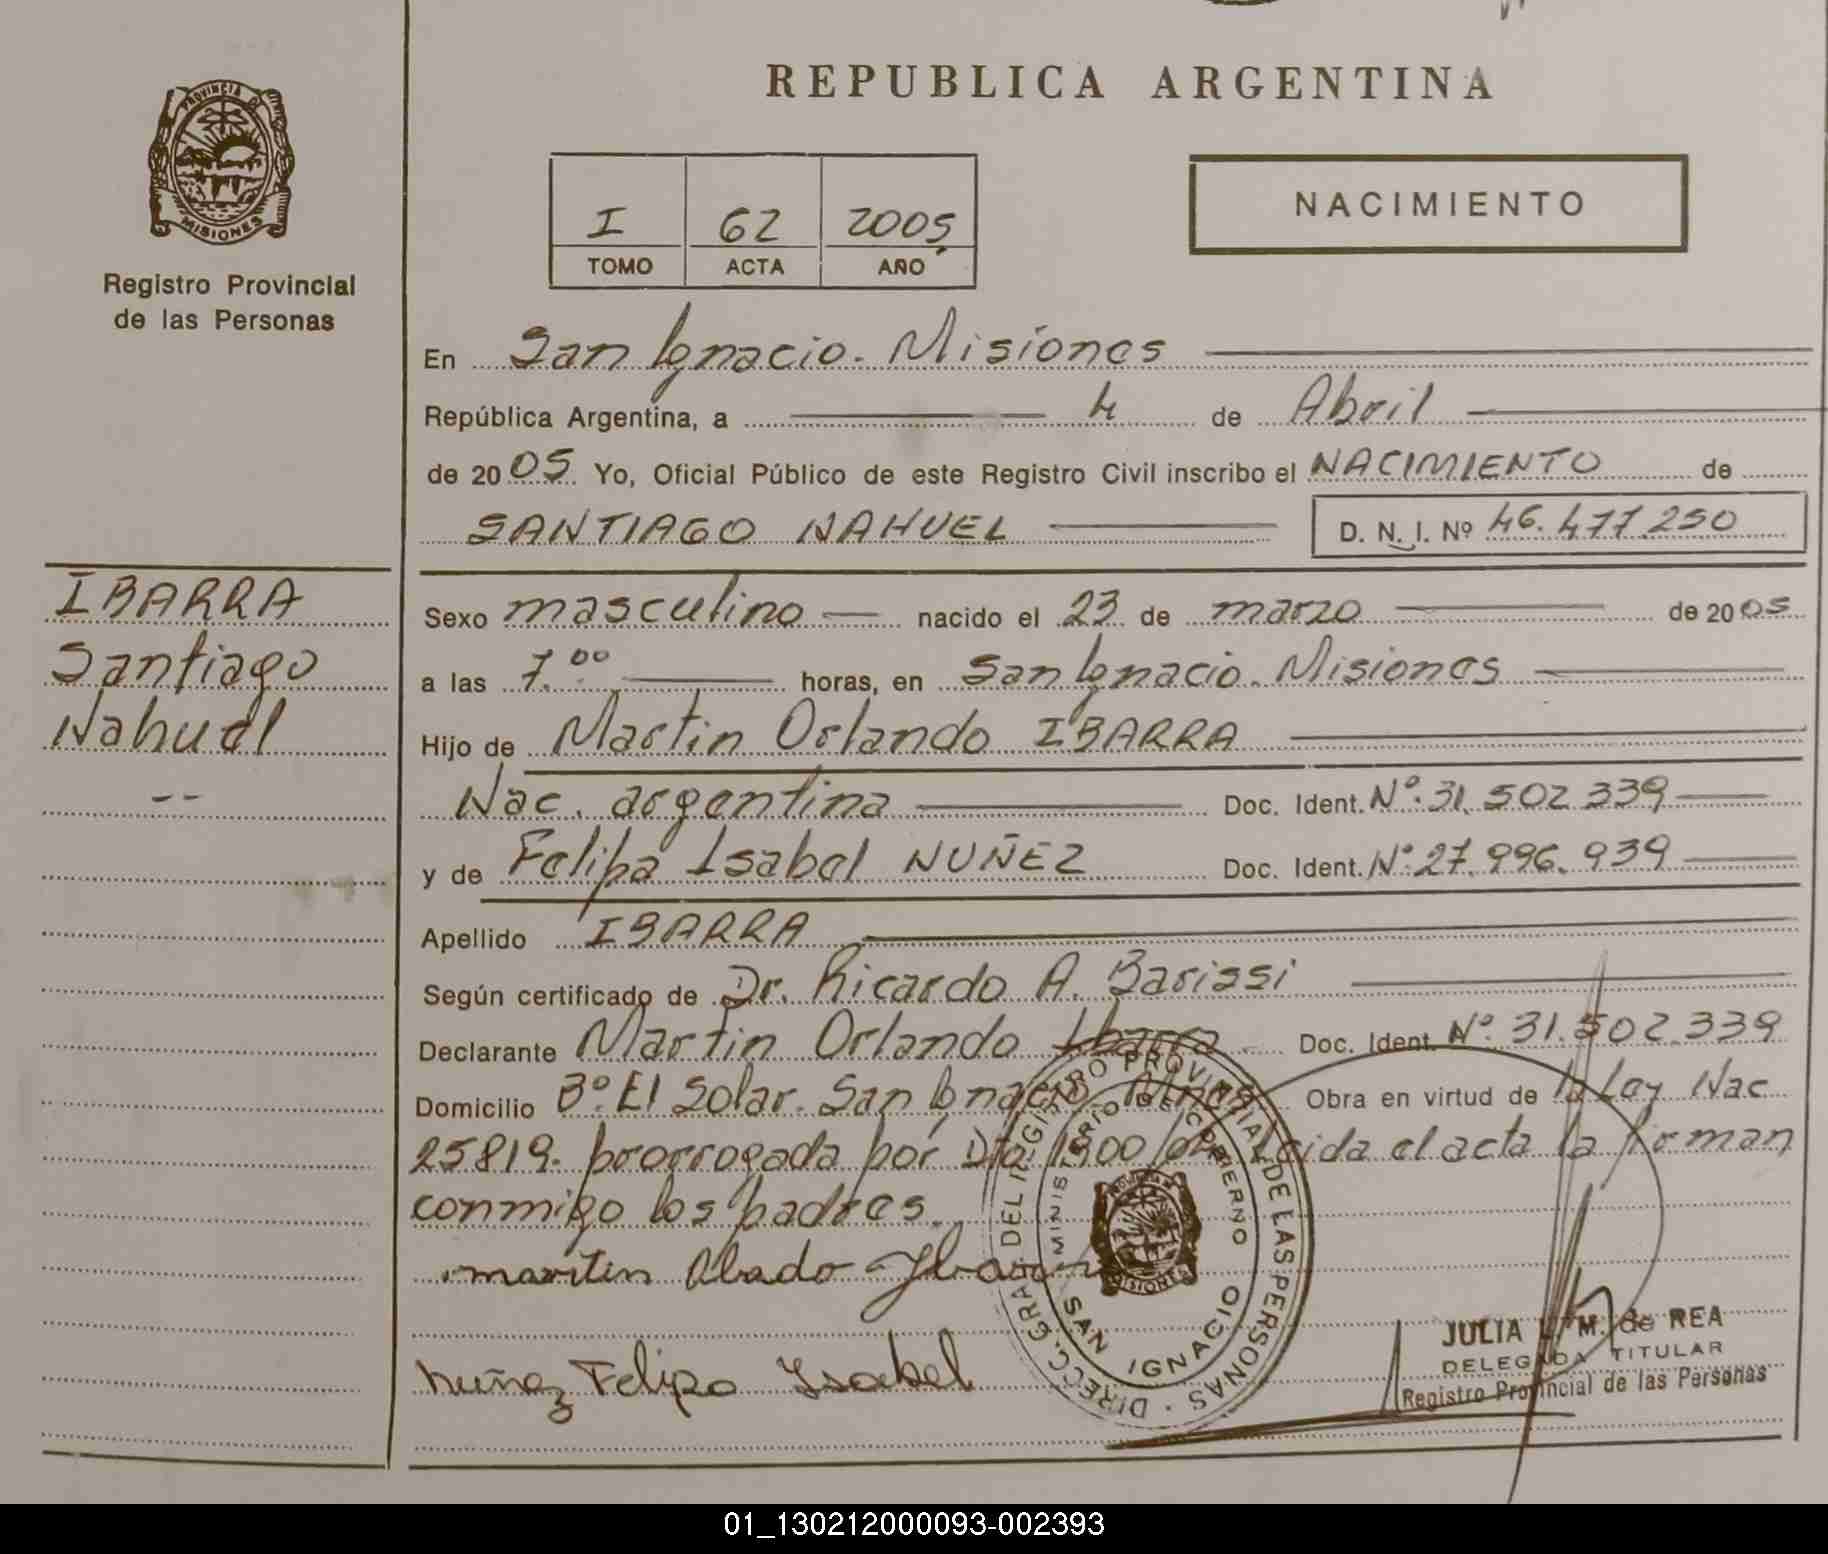 REPUBLICA ARGENTINA
PROVINCIA DE
MISIONES
Registro Provincial
de las Personas
I 62 2005
TOMO ACTA AÑO
NACIMIENTO
En San Ignacio. Misiones
República Argentina, a 4 de Abril
de 2005 Yo, Oficial Público de este Registro Civil inscribo el NACIMIENTO de
SANTIAGO NAHUEL D. N. I. Nº 46.477.250
IBARRA
Santiago
Nahuel
--
Sexo masculino nacido el 23 de marzo de 2005
a las 7.00 horas, en San Ignacio. Misiones
Hijo de Martin Orlando IBARRA
Nac. argentina Doc. Ident. Nº. 31.502.339
y de Felipa Isabel NUÑEZ Doc. Ident. Nº. 27.996.939
Apellido IBARRA
Según certificado de Dr. Ricardo A. Barissi
Declarante Martin Orlando Ibarra Doc. Ident. Nº. 31.502.339
Domicilio Bº. El Solar. San Ignacio Mnes Obra en virtud de la Ley Nac
25819. prorrogada por Dto 1300 Leida el acta la firman
conmigo los padres.
martin Olado Ybarra
Nuñez Felipa Ysabel
DIRECC. GRAL. DEL REGISTRO PROVINCIAL DE LAS PERSONAS
MINISTERIO DE GOBIERNO
MISIONES
SAN IGNACIO
JULIA M. de REA
DELEGADA TITULAR
Registro Provincial de las Personas
01_130212000093-002393